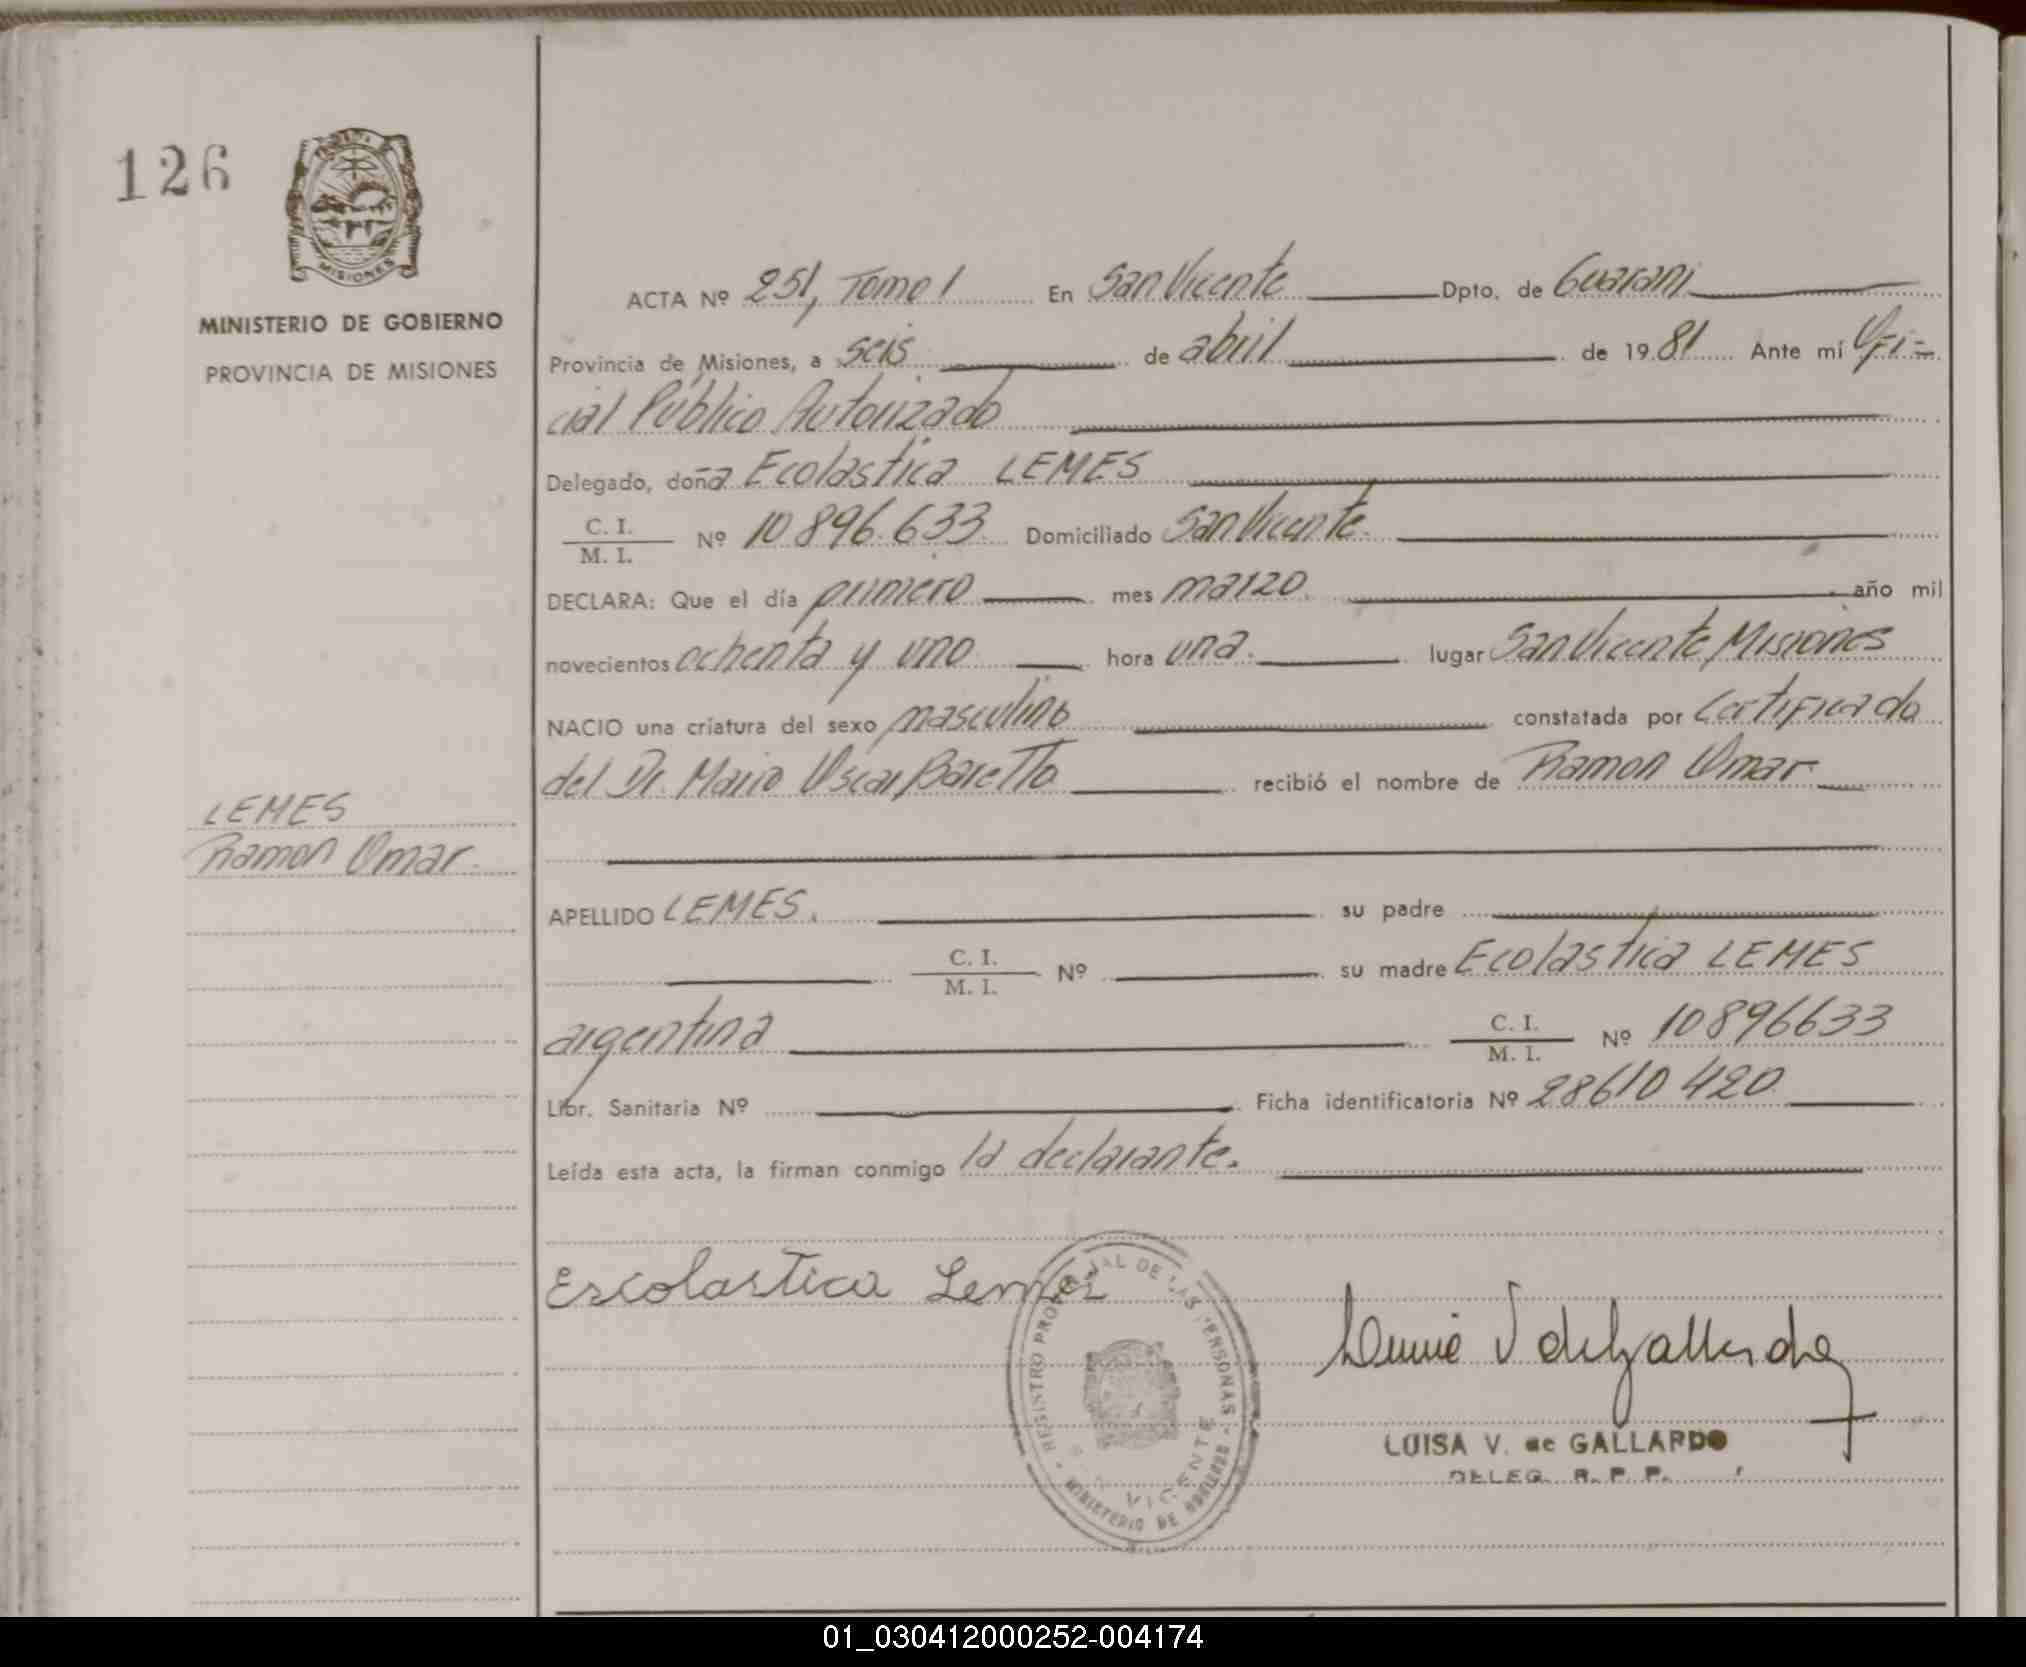 126
MISIONES
MINISTERIO DE GOBIERNO
PROVINCIA DE MISIONES
ACTA Nº 251, Tomo 1 En San Vicente Dpto. de Guarani
Provincia de Misiones, a seis de abril de 1981 Ante mí Ofi-
cial Público Autorizado
Delegado, doña Ecolastica LEMES
C. I.
M. I. Nº 10.896.633 Domiciliado San Vicente.
DECLARA: Que el día primero mes marzo. año mil
novecientos ochenta y uno hora una. lugar San Vicente, Misiones
NACIO una criatura del sexo masculino constatada por Certificado
del Dr. Mario Oscar Baretto recibió el nombre de Ramon Omar
LEMES
Ramon Omar.
APELLIDO LEMES. su padre
C. I.
M. I. Nº su madre Ecolastica LEMES
argentina C. I.
M. I. Nº 10896633
Libr. Sanitaria Nº Ficha identificatoria Nº 28610420
Leída esta acta, la firman conmigo la declarante.
Escolastica Lemes
REGISTRO PROVINCIAL DE LAS PERSONAS
VICENTE
MINISTERIO DE GOBIERNO
LUISA V. de GALLARDO
DELEG. R. P. P.
01_030412000252-004174